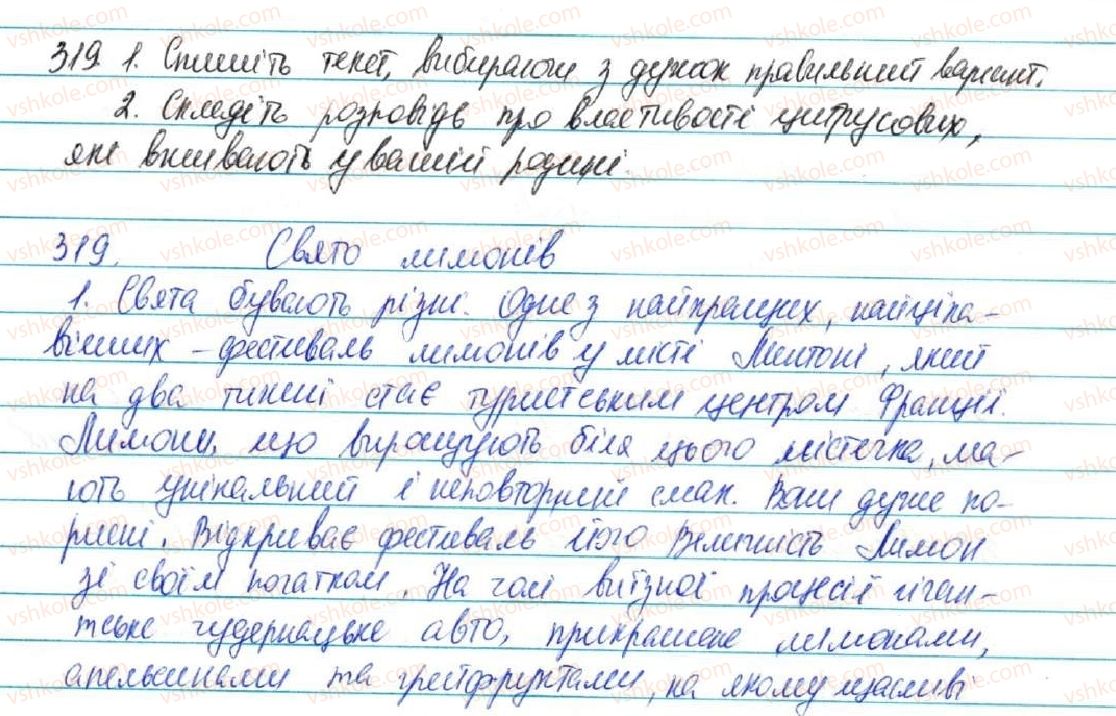 319 1. Спишіть текст, вибираючи з дужок правильний варіант.
2. Складіть розповідь про властивості цитрусових,
які вживають у вашій родині.
319. Свято лимонів
1. Свята бувають різні. Одне з найкращих, найціка-
віших – фестиваль лимонів у місті Ментоні, який
на два тижні стає туристським центром Франції.
Лимони, що вирощують біля цього містечка, ма-
ють унікальний і неповторний смак. Вони дуже ко-
рисні. Відкриває фестиваль його Величність Лимон
зі своїм почтом. На чолі виїзної процесії гіган-
тське чудернацьке авто, прикрашене лимонами,
апельсинами та грейпфрутами, на якому щасливі